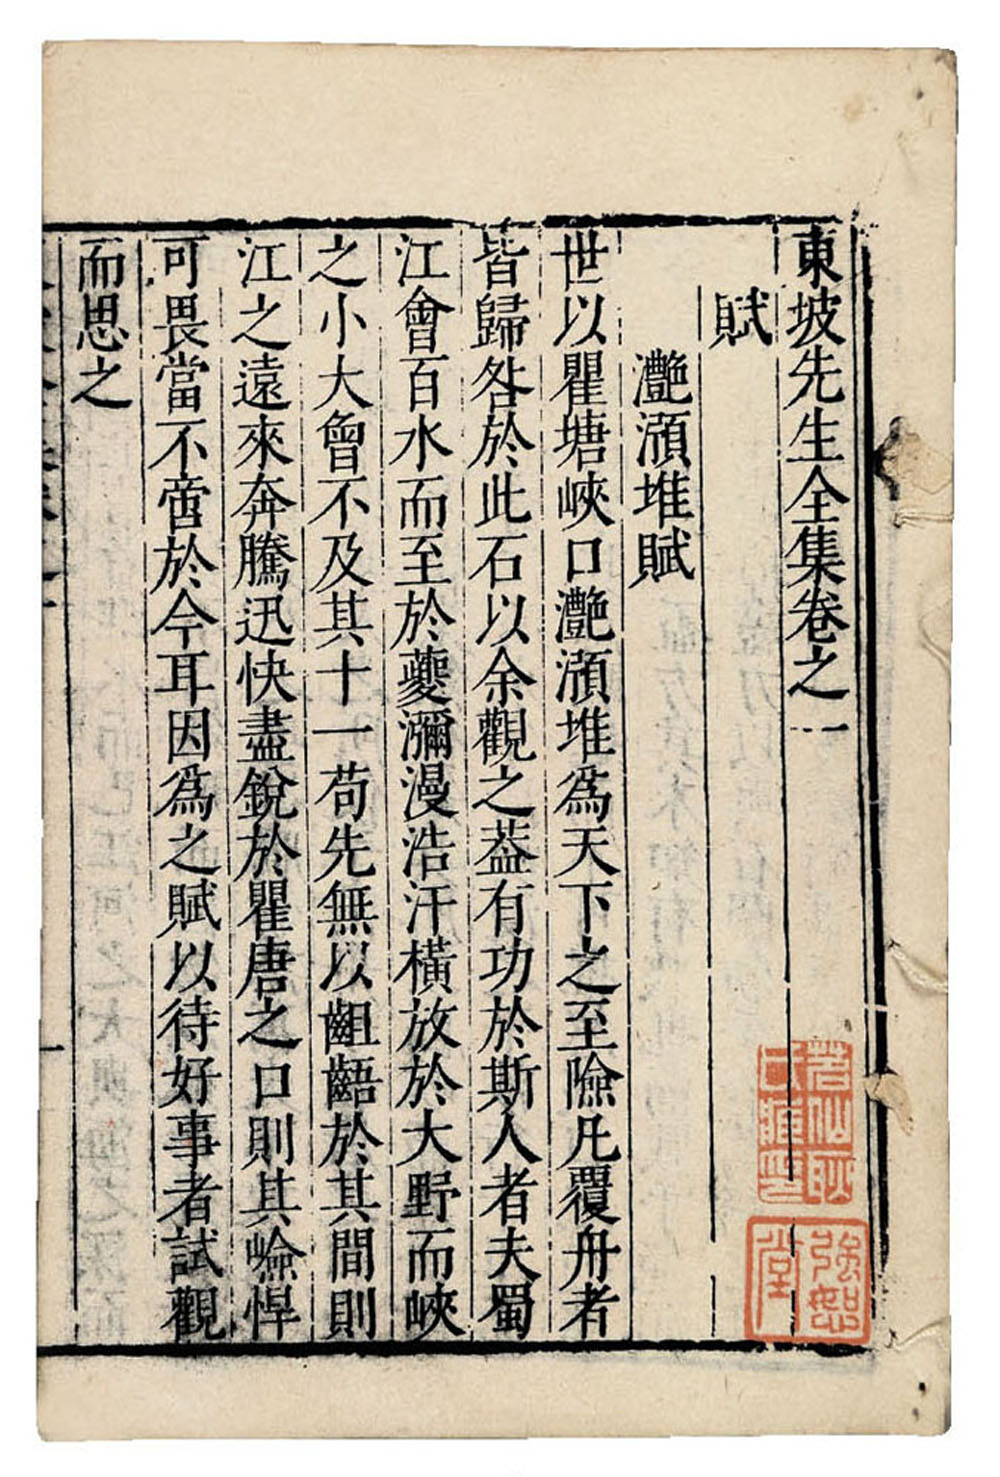 東坡先生全集卷之一
賦
灩澦堆賦
世以瞿塘峽口灩澦堆爲天下之至險凡覆舟者
皆歸咎於此石以余觀之葢有功於斯人者夫蜀
江會百水而至於夔瀰漫浩汗橫放於大野而峽
之小大曾不及其十一苟先無以齟齬於其間則
江之遠來奔騰迅快盡銳於瞿唐之口則其嶮悍
可畏當不啻於今耳因爲之賦以待好事者試觀
而思之
強恕堂